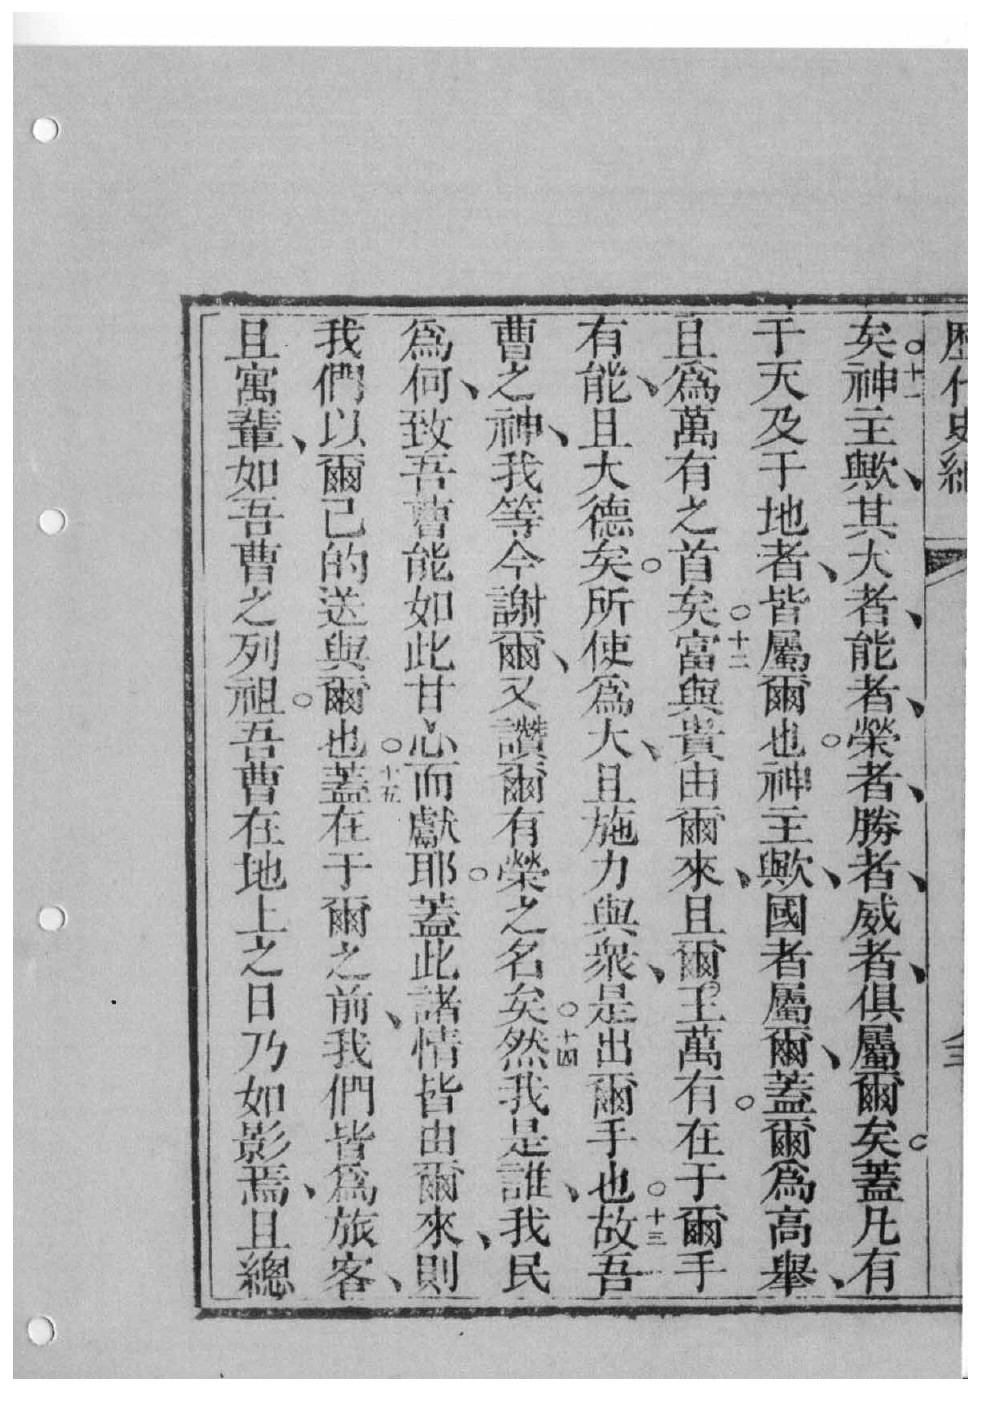 歷代史紀
矣。十一神主歟、其大者、能者、榮者、勝者、威者、俱屬爾矣。蓋凡有
于天及于地者、皆屬爾也。神主歟、國者屬爾、蓋爾為高舉、
且為萬有之首矣。十二富與貴由爾來、且爾王萬有。在于爾手
有能、且大德矣。所使為大、且施力與衆、是出爾手也。十三故吾
曹之神、我等今謝爾、又讚爾有榮之名矣。十四然我是誰、我民
為何、致吾曹能如此甘心而獻耶。蓋此諸情皆由爾來、則
我們以爾己的送與爾也。十五蓋在于爾之前、我們皆為旅客、
且寓輩、如吾曹之列祖。吾曹在地上之日乃如影焉、且總